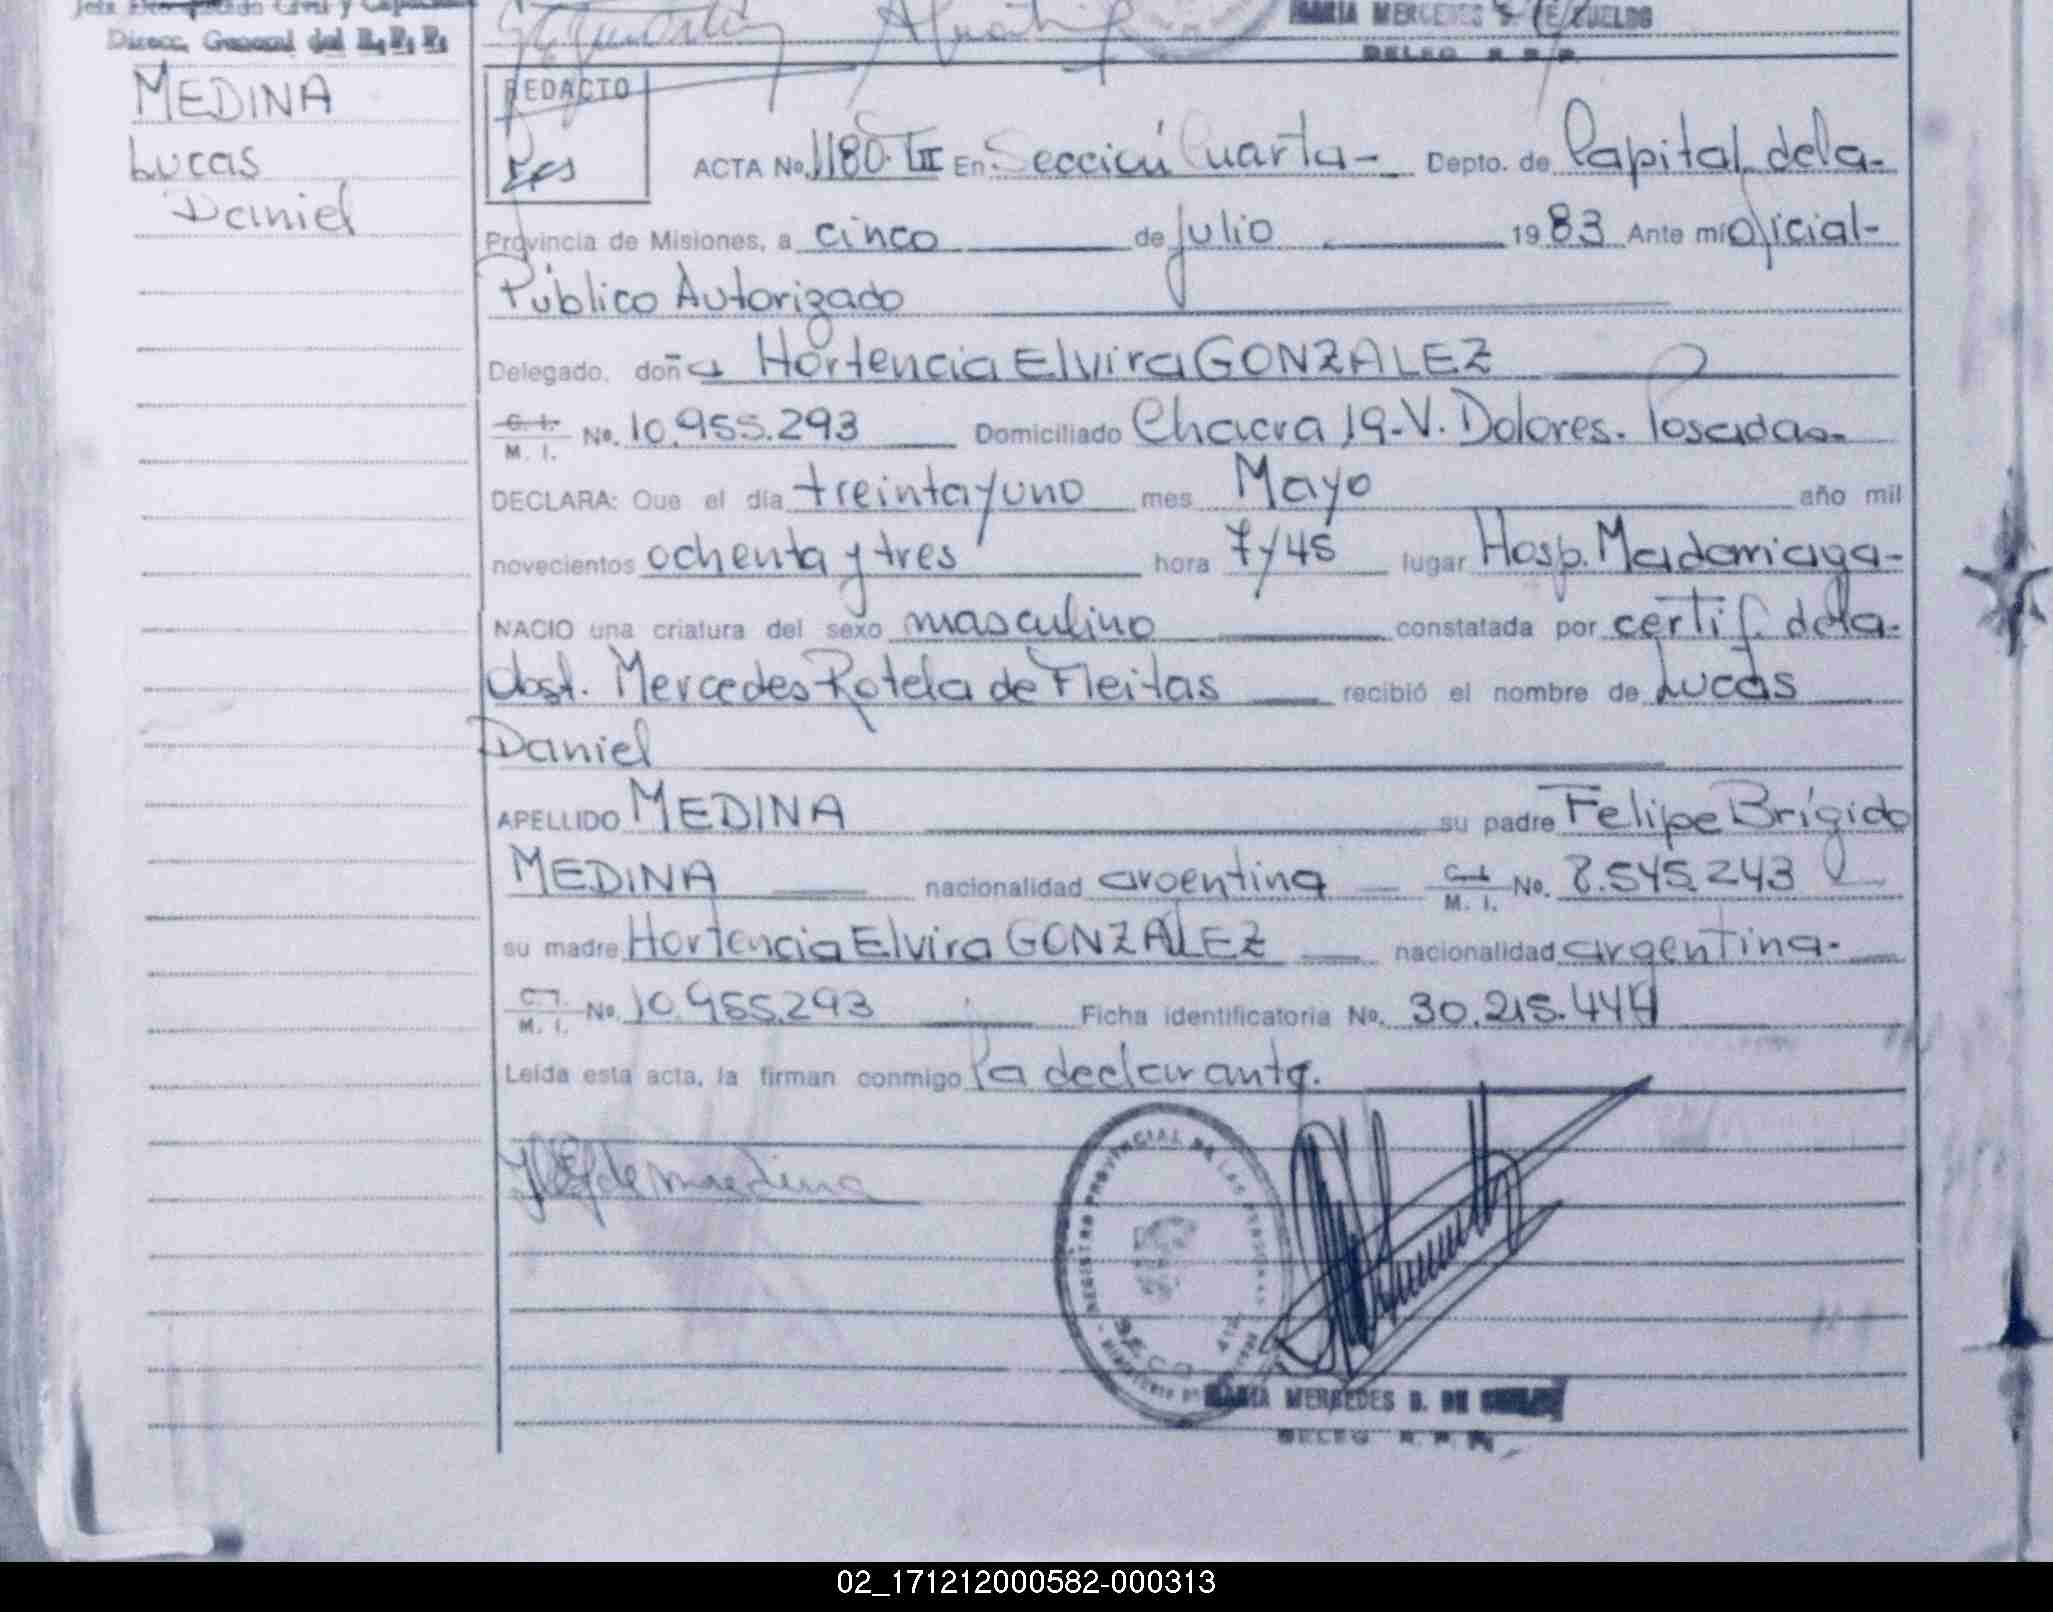 Direcc. General del R. P. P.
MARIA MERCEDES
DELEG R. P. P.
MEDINA
Lucas
Daniel
REDACTO
ACTA No. 1180. TII En Sección Cuarta- Depto. de Capital de la-
Provincia de Misiones, a cinco de julio 1983 Ante mí Oficial-
Público Autorizado
Delegado, doña Hortencia Elvira GONZALEZ
C. I. M. I. No. 10.955.293 Domiciliado Chacra 19-V. Dolores. Posadas-
DECLARA: Que el día treinta y uno mes Mayo año mil
novecientos ochenta y tres hora 7/45 lugar Hosp. Madariaga-
NACIO una criatura del sexo masculino constatada por certif. de la-
Obst. Mercedes Rotela de Fleitas recibió el nombre de Lucas
Daniel
APELLIDO MEDINA su padre Felipe Brígido
MEDINA nacionalidad argentina C. I. M. I. No. 8.545.243
su madre Hortencia Elvira GONZALEZ nacionalidad argentina-
C. I. M. I. No. 10.955.293 Ficha identificatoria No. 30.215.444
Leída esta acta, la firman conmigo la declarante.
de medina
REGISTRO PROVINCIAL DE LAS PERSONAS
MARIA MERCEDES B. DE
DELEG R. P. P.
02_171212000582-000313